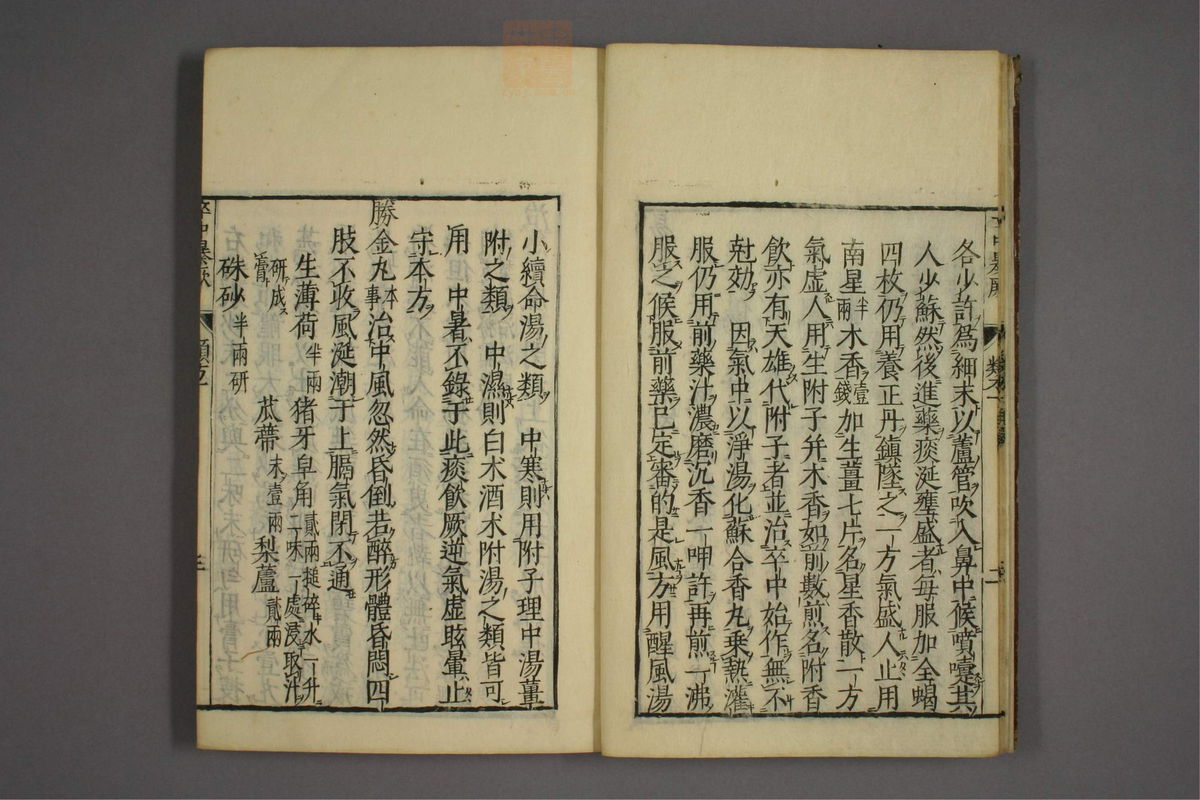 各少許爲細末以蘆管吹入鼻中候噴嚏其
人少蘇然後進藥痰涎壅盛者每服加全蝎
四枚仍用養正丹鎮墜之一方氣盛人止用
南星半兩木香壹錢加生薑七片名星香散一方
氣虛人用生附子并木香如前數煎名附香
飲亦有天雄代附子者並治卒中始作無不
尅効 因氣中以淨湯化蘇合香丸乗熱灌
服仍用前藥汁濃磨沉香一呷許再煎一沸
服之候服前藥已定審的是風方用醒風湯
小續命湯之類 中寒則用附子理中湯薑
附之類 中濕則白术酒术附湯之類皆可
用 中暑不錄于此痰飲厥逆氣虛眩暈止
守本方
勝金丸本事治中風忽然昏倒若醉形體昏悶四
肢不收風涎潮于上膈氣閉不通
生薄荷半兩 猪牙皁角貳兩搥碎水一升二味一處浸取汁
研成膏 苽蔕末壹兩 梨蘆貳兩
硃砂半兩研